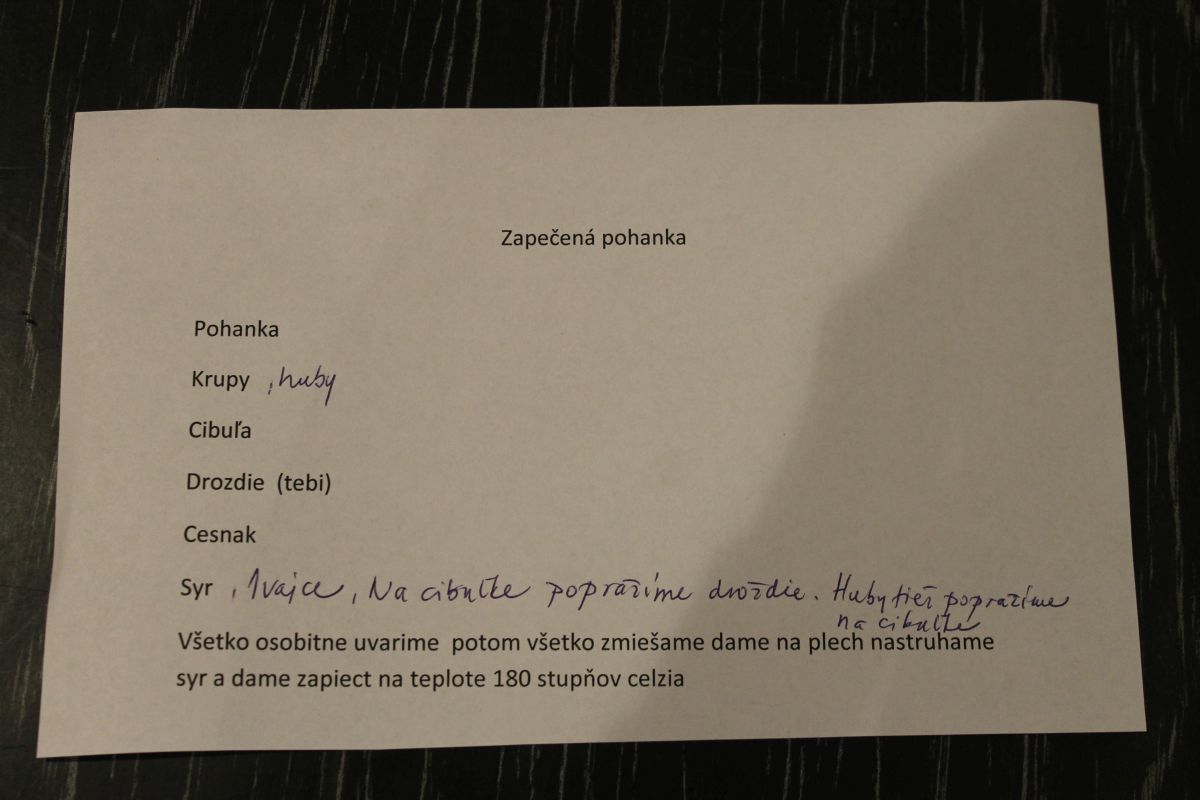 Zapečená pohanka
Pohanka
Krupy , huby
Cibuľa
Drozdie (tebi)
Cesnak
Syr , 1 vajce, Na cibuľke popražíme droždie. Huby tiež popražíme
na cibuľke
Všetko osobitne uvarime potom všetko zmiešame dame na plech nastruhame
syr a dame zapiect na teplote 180 stupňov celzia